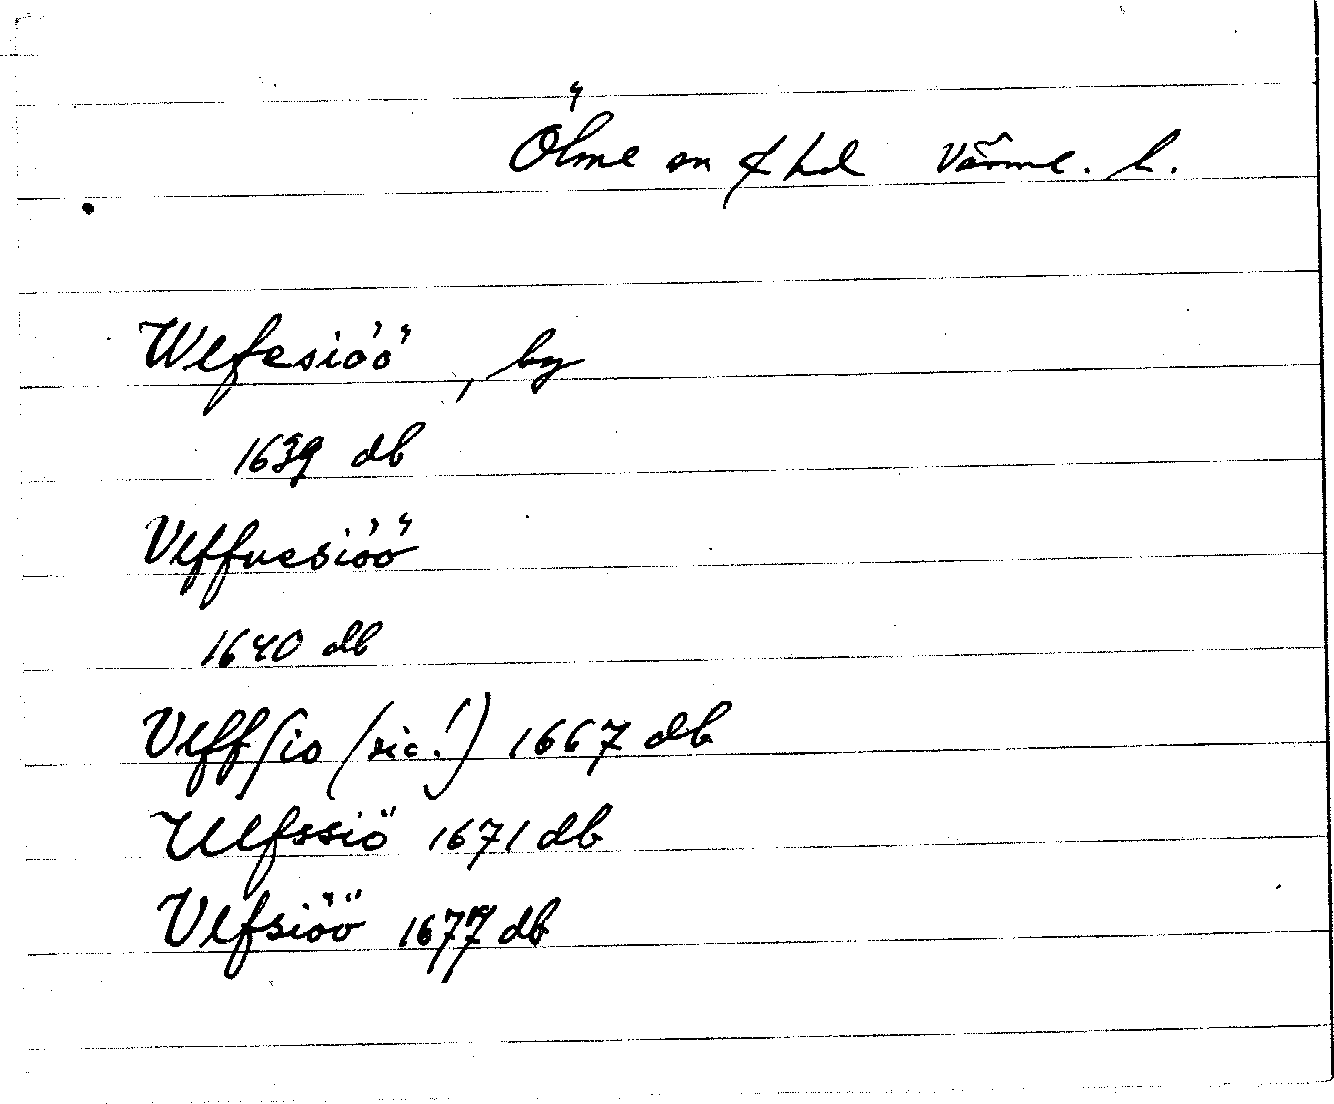 Ölme sn & hd Värml. l.
Wlfesiöö, by
1639 db
Vlffuesiöö
1640 db
Vlffsio (sic!) 1667 db
Ulfssiö 1671 db
Vlfsiöö 1677 db